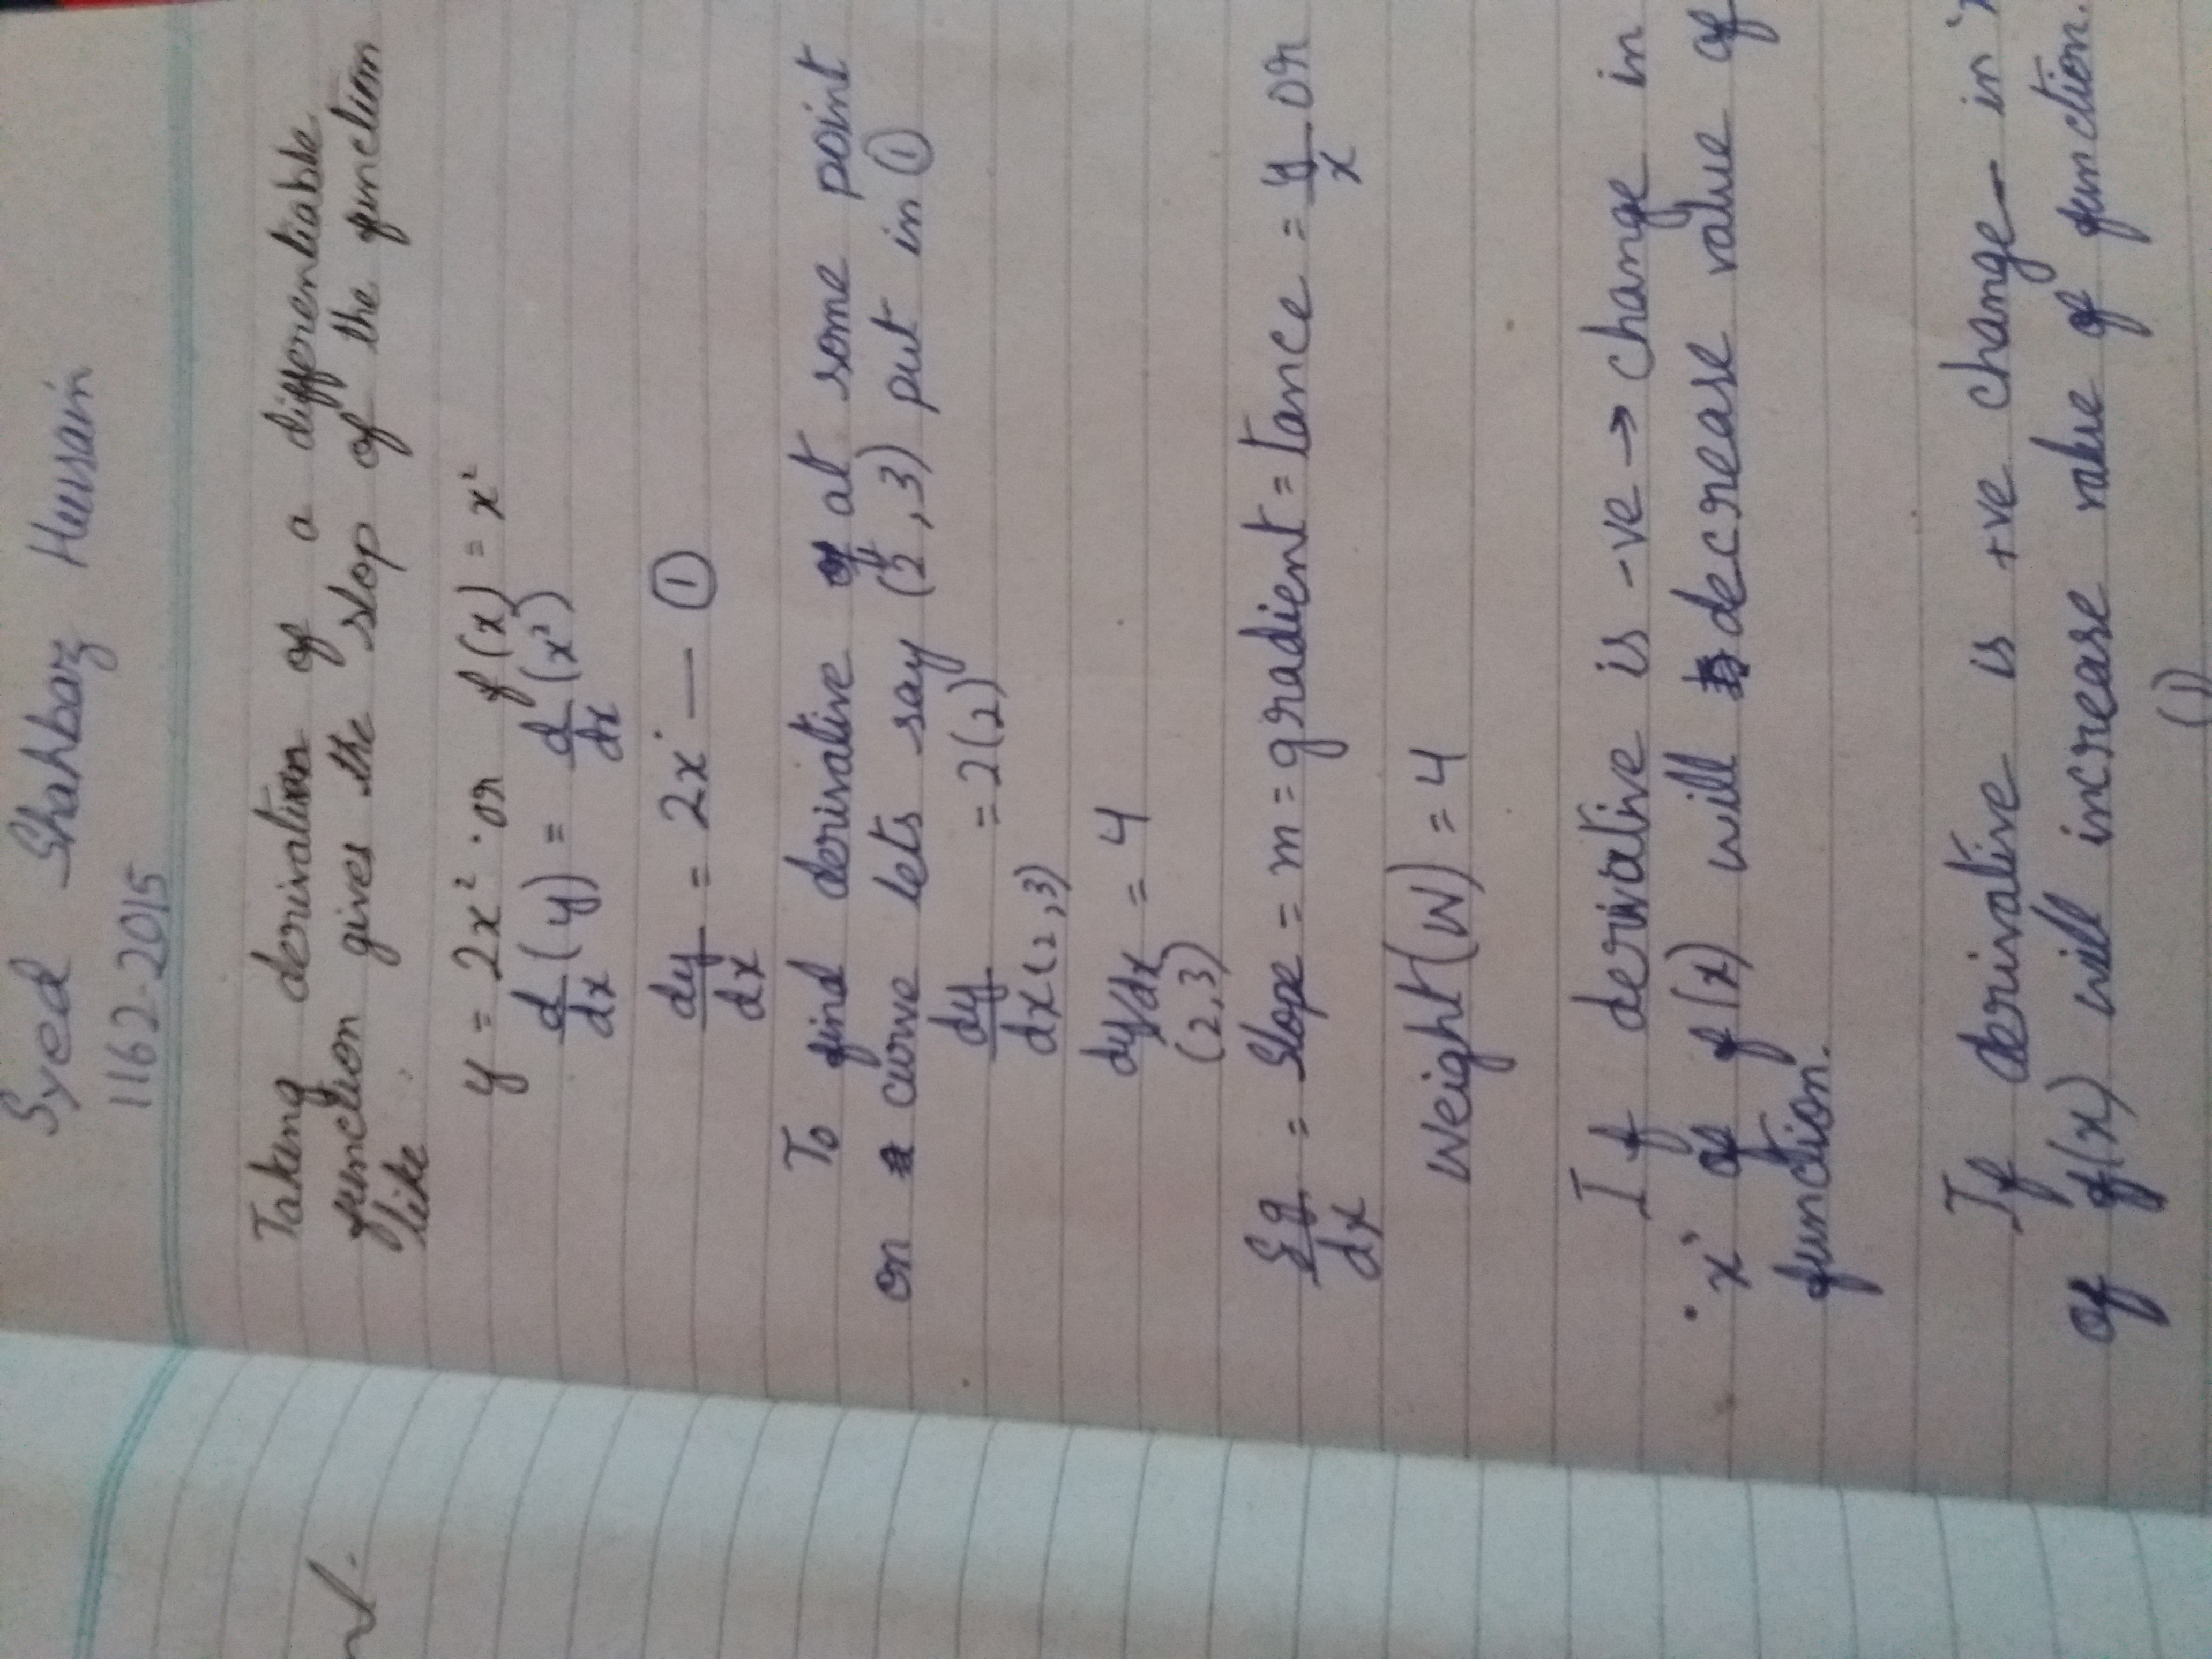 Syed Shahbaz Hussain
1162-2015
Taking derivation of a differentiable
function gives the slop of the function
like
y = 2x² or f(x) = x²
d/dx (y) = d/dx (x²)
dy/dx = 2x — ①
To find derivative at some point
on curve lets say (2,3) put in ①
dy/dx (2,3) = 2(2)
dy/dx = 4
(2,3)
= Slope = m = gradient = tance = y/x or
Weight (W) = 4
If derivative is -ve → change in
'x' of f(x) will decrease value of
function.
If derivative is +ve change in 'x
of f(x) will increase value of function.
(1)